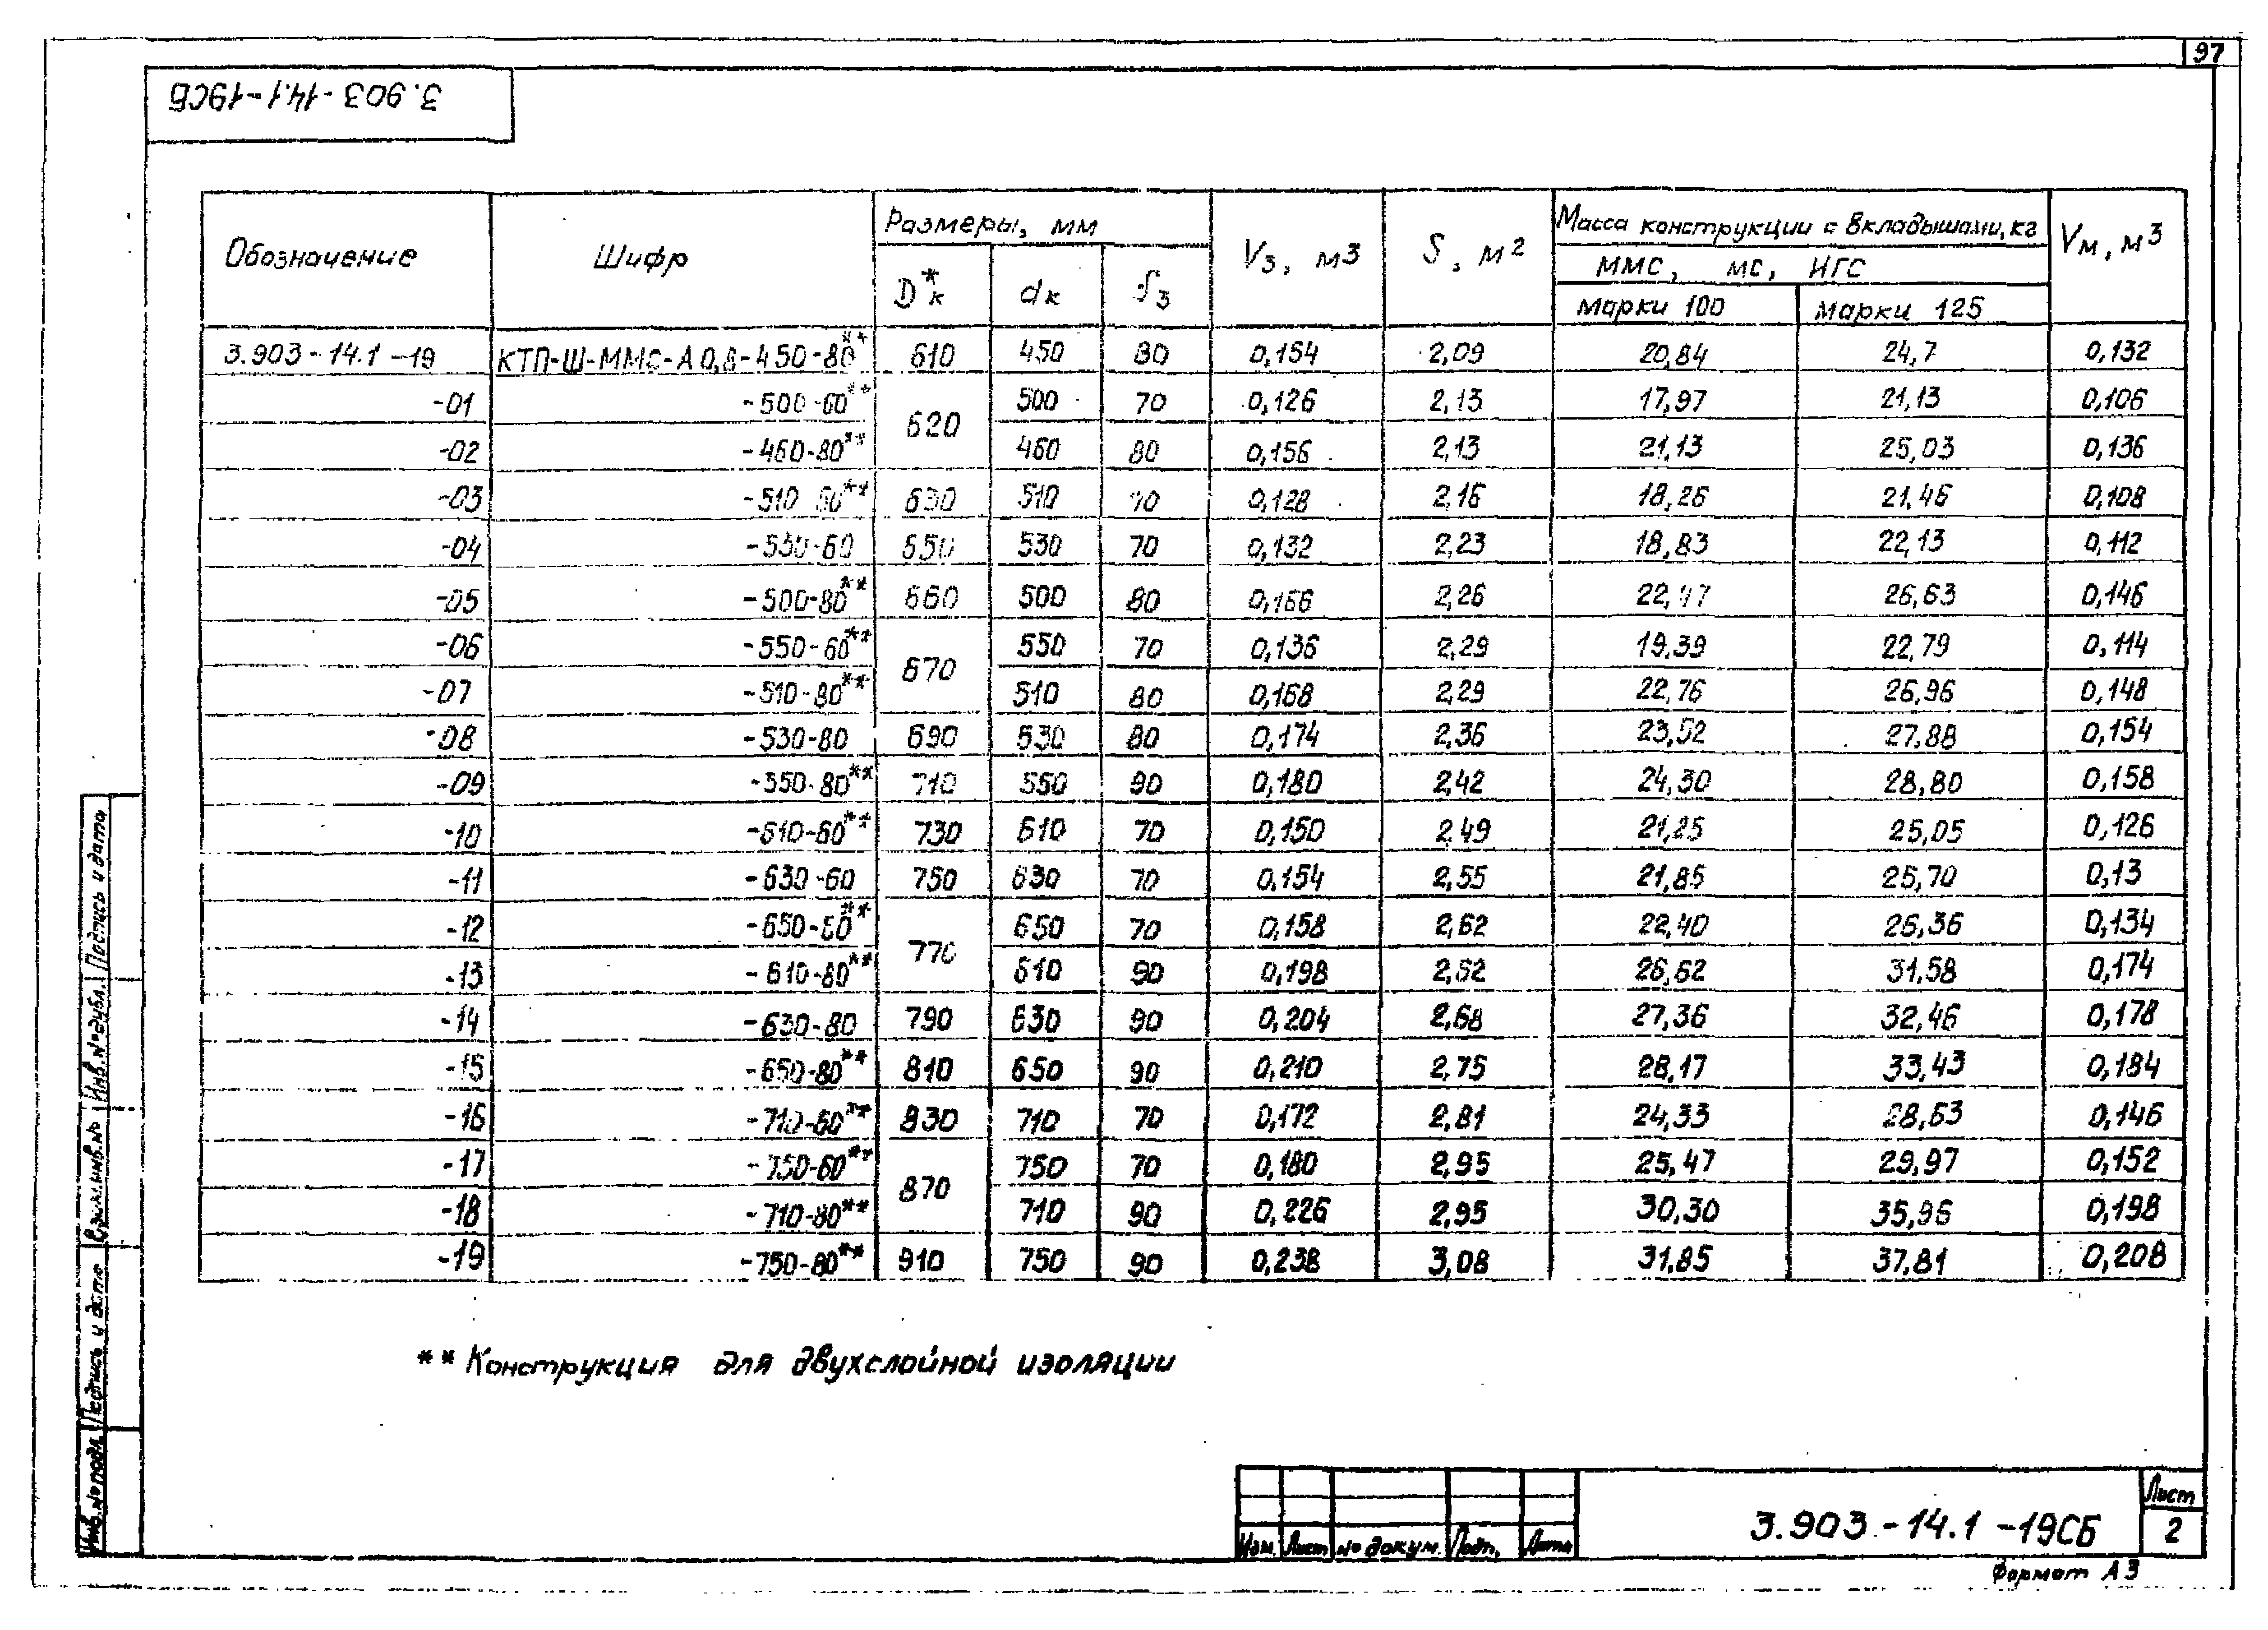 97
3.903-14.1-19СБ
Обозначение Шифр Размеры, мм V₃, м3 S, м2 Масса конструкции с вкладышами, кг Vм, м3
D*к dк δ₃ ММС, МС, ИГС
марки 100 марки 125
3.903-14.1-19 КТП-Ш-ММС-А0,8-450-80** 610 450 80 0,154 2,09 20,84 24,7 0,132
-01 -500-60** 620 500 70 0,126 2,13 17,97 21,13 0,106
-02 -460-80** 460 80 0,156 2,13 21,13 25,03 0,136
-03 -510-60** 630 510 70 0,128 2,16 18,26 21,46 0,108
-04 -530-60 650 530 70 0,132 2,23 18,83 22,13 0,112
-05 -500-80** 660 500 80 0,166 2,26 22,47 26,63 0,146
-06 -550-60** 670 550 70 0,136 2,29 19,39 22,79 0,114
-07 -510-80** 510 80 0,168 2,29 22,76 26,96 0,148
-08 -530-80 690 530 80 0,174 2,36 23,52 27,88 0,154
-09 -550-80** 710 550 90 0,180 2,42 24,30 28,80 0,158
-10 -610-60** 730 610 70 0,150 2,49 21,25 25,05 0,126
-11 -630-60 750 630 70 0,154 2,55 21,85 25,70 0,13
-12 -650-60** 770 650 70 0,158 2,62 22,40 26,36 0,134
-13 -610-80** 610 90 0,198 2,62 26,62 31,58 0,174
-14 -630-80 790 630 90 0,204 2,68 27,36 32,46 0,178
-15 -650-80** 810 650 90 0,210 2,75 28,17 33,43 0,184
-16 -710-60** 830 710 70 0,172 2,81 24,33 28,63 0,146
-17 -750-60** 870 750 70 0,180 2,95 25,47 29,97 0,152
-18 -710-80** 710 90 0,226 2,95 30,30 35,96 0,198
-19 -750-80** 910 750 90 0,238 3,08 31,85 37,81 0,208
** Конструкция для двухслойной изоляции
Инв.№ подл. Подпись и дата Взам.инв.№ Инв.№ дубл. Подпись и дата
Изм. Лист № докум. Подп. Дата
3.903-14.1-19СБ
Лист
2
Формат А3